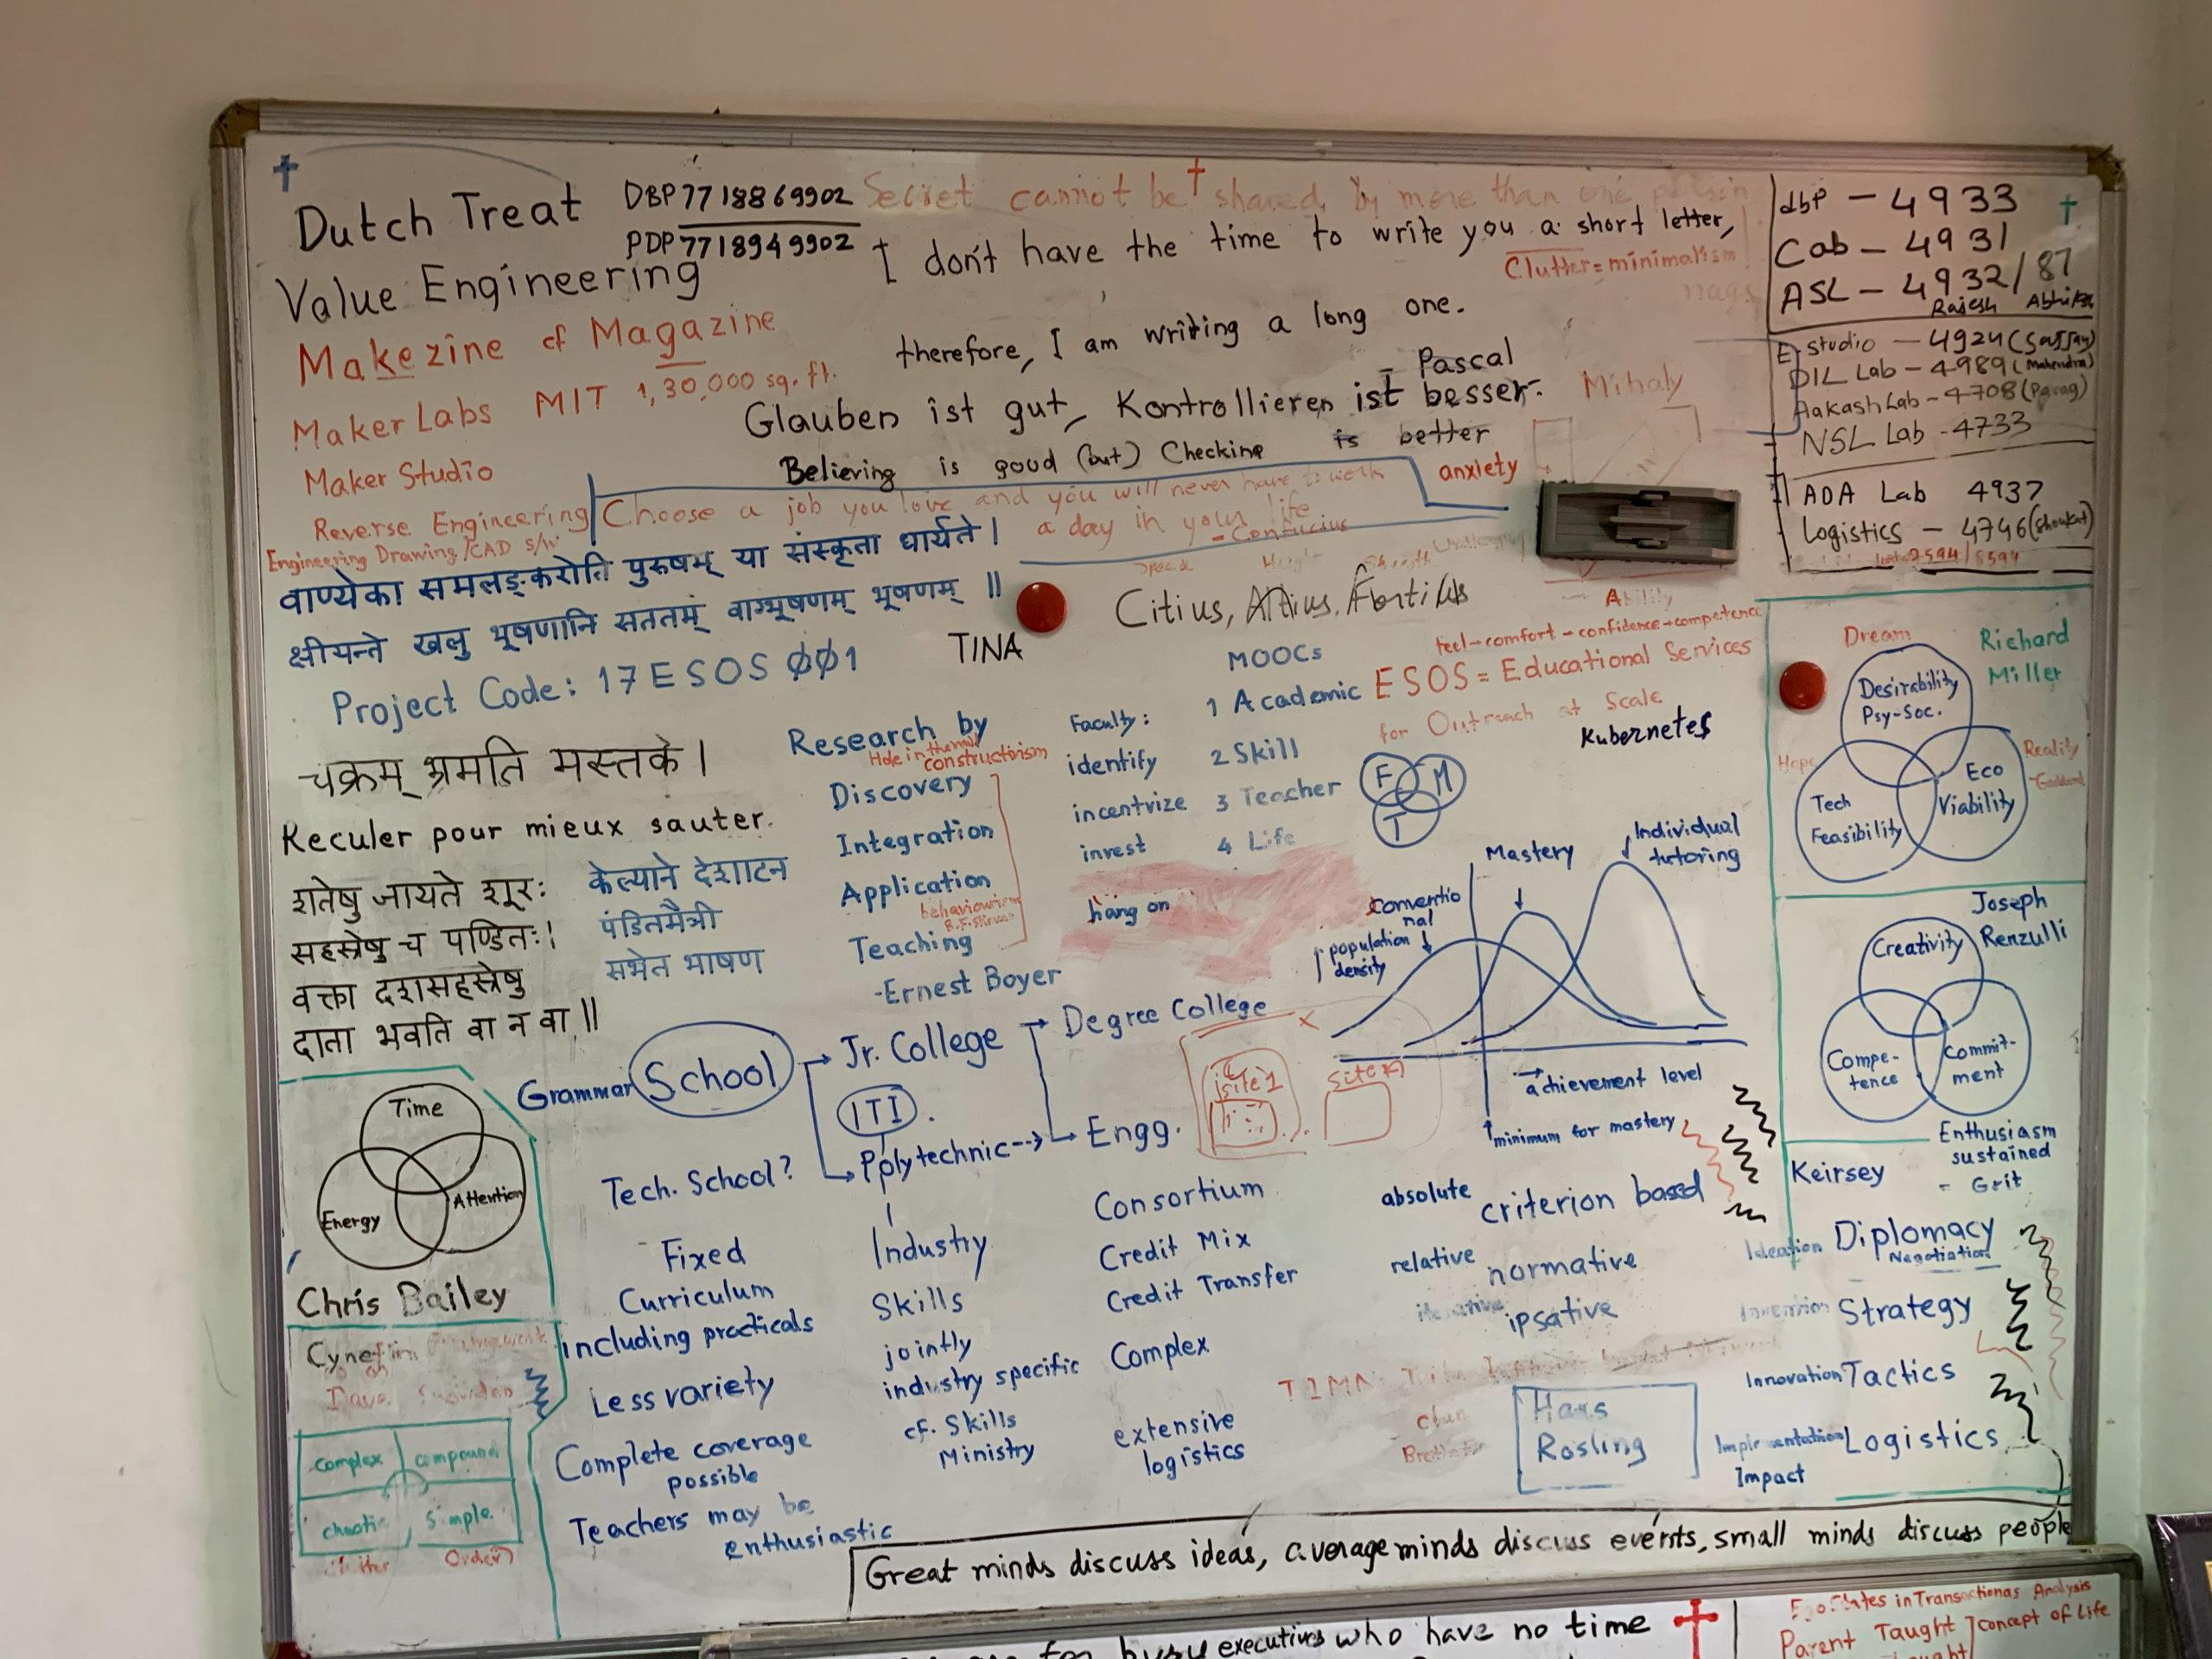 Dutch Treat
DBP 7718869902
PDP 7718949902
Secret cannot be shared by more than one person
I don't have the time to write you a short letter,
Clutter = minimalism
therefore, I am writing a long one.
- Pascal
Value Engineering
Makezine cf Magazine
Maker Labs MIT 1,30,000 sq. ft.
Maker Studio
Reverse Engineering
Engineering Drawing/CAD s/w
Glauben ist gut, Kontrollieren ist besser.
Believing is good (but) Checking is better
Mihaly
anxiety
Choose a job you love and you will never have to work
a day in your life
- Confucius
dbp - 4933
Cab - 4931
ASL - 4932/87
Rajesh
E-studio - 4924
DIL Lab - 4989 (Mahendra)
Aakash Lab - 4708 (Parag)
NSL Lab - 4733
ADA Lab 4937
Logistics - 4746 (Shoukat)
वाण्येका समलङ्करोति पुरुषम् या संस्कृता धार्यते।
क्षीयन्ते खलु भूषणानि सततम् वाग्भूषणम् भूषणम् ॥
Height
Citius, Altius, Fortius
Ability
feel-comfort-confidence-competence
TINA
Project Code: 17ESOS001
MOOCs
ESOS = Educational Services
for Outreach at Scale
Kubernetes
1 Academic
2 Skill
3 Teacher
4 Life
Faculty:
identify
incentivize
invest
hang on
Research by
constructivism
Discovery
Integration
Application
behaviourism
Teaching
-Ernest Boyer
चक्रम् भ्रमति मस्तके।
Reculer pour mieux sauter.
शतेषु जायते शूरः
सहस्त्रेषु च पण्डितः।
वक्ता दशसहस्त्रेषु
दाता भवति वा न वा ॥
केल्याने देशाटन
पंडितमैत्री
सभेत भाषण
F M
T
Mastery
Individual
tutoring
Conventio
nal
population
density
achievement level
minimum for mastery
Dream
Richard
Miller
Desirability
Psy-Soc.
Hope
Reality
Tech
Feasibility
Eco
Viability
Joseph
Renzulli
Creativity
Compe-
tence
Commit-
ment
Enthusiasm
sustained
= Grit
Keirsey
Grammar School
Jr. College
Degree College
ITI
Polytechnic
Engg.
site 1
Tech. School?
Fixed
Curriculum
including practicals
Less variety
Complete coverage
possible
Teachers may be
enthusiastic
Industry
Skills
jointly
industry specific
cf. Skills
Ministry
Consortium
Credit Mix
Credit Transfer
Complex
extensive
logistics
absolute criterion based
relative normative
ipsative
Hans
Rosling
Ideation Diplomacy
Negotiation
Invention Strategy
Innovation Tactics
Implementation Logistics
Impact
Time
Energy
Attention
Chris Bailey
Cynefin
complex
compound
chaotic
Simple
Order
Great minds discuss ideas, average minds discuss events, small minds discuss people
for busy executives who have no time
Ego States in Transactional Analysis
Parent Taught
Concept of Life